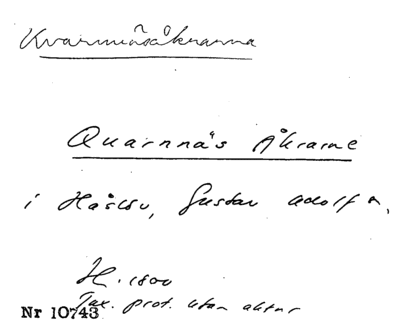 Kvarnnäsåkrarna
Quarnnäs Åkrarne
i Håslöv, Gustav Adolf s,
H. 1800
Tax. prot. utan aktnr
Nr 10743